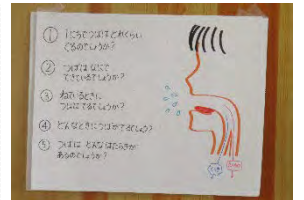 ① 1にちでつばはどれくらい
でるのでしょうか?
② つばはなにで
できているでしょうか?
③ ねているときに
つばはでるでしょうか?
④ どんなときにつばがでるでしょう?
⑤ つばは どんなはたらきが
あるのでしょうか?